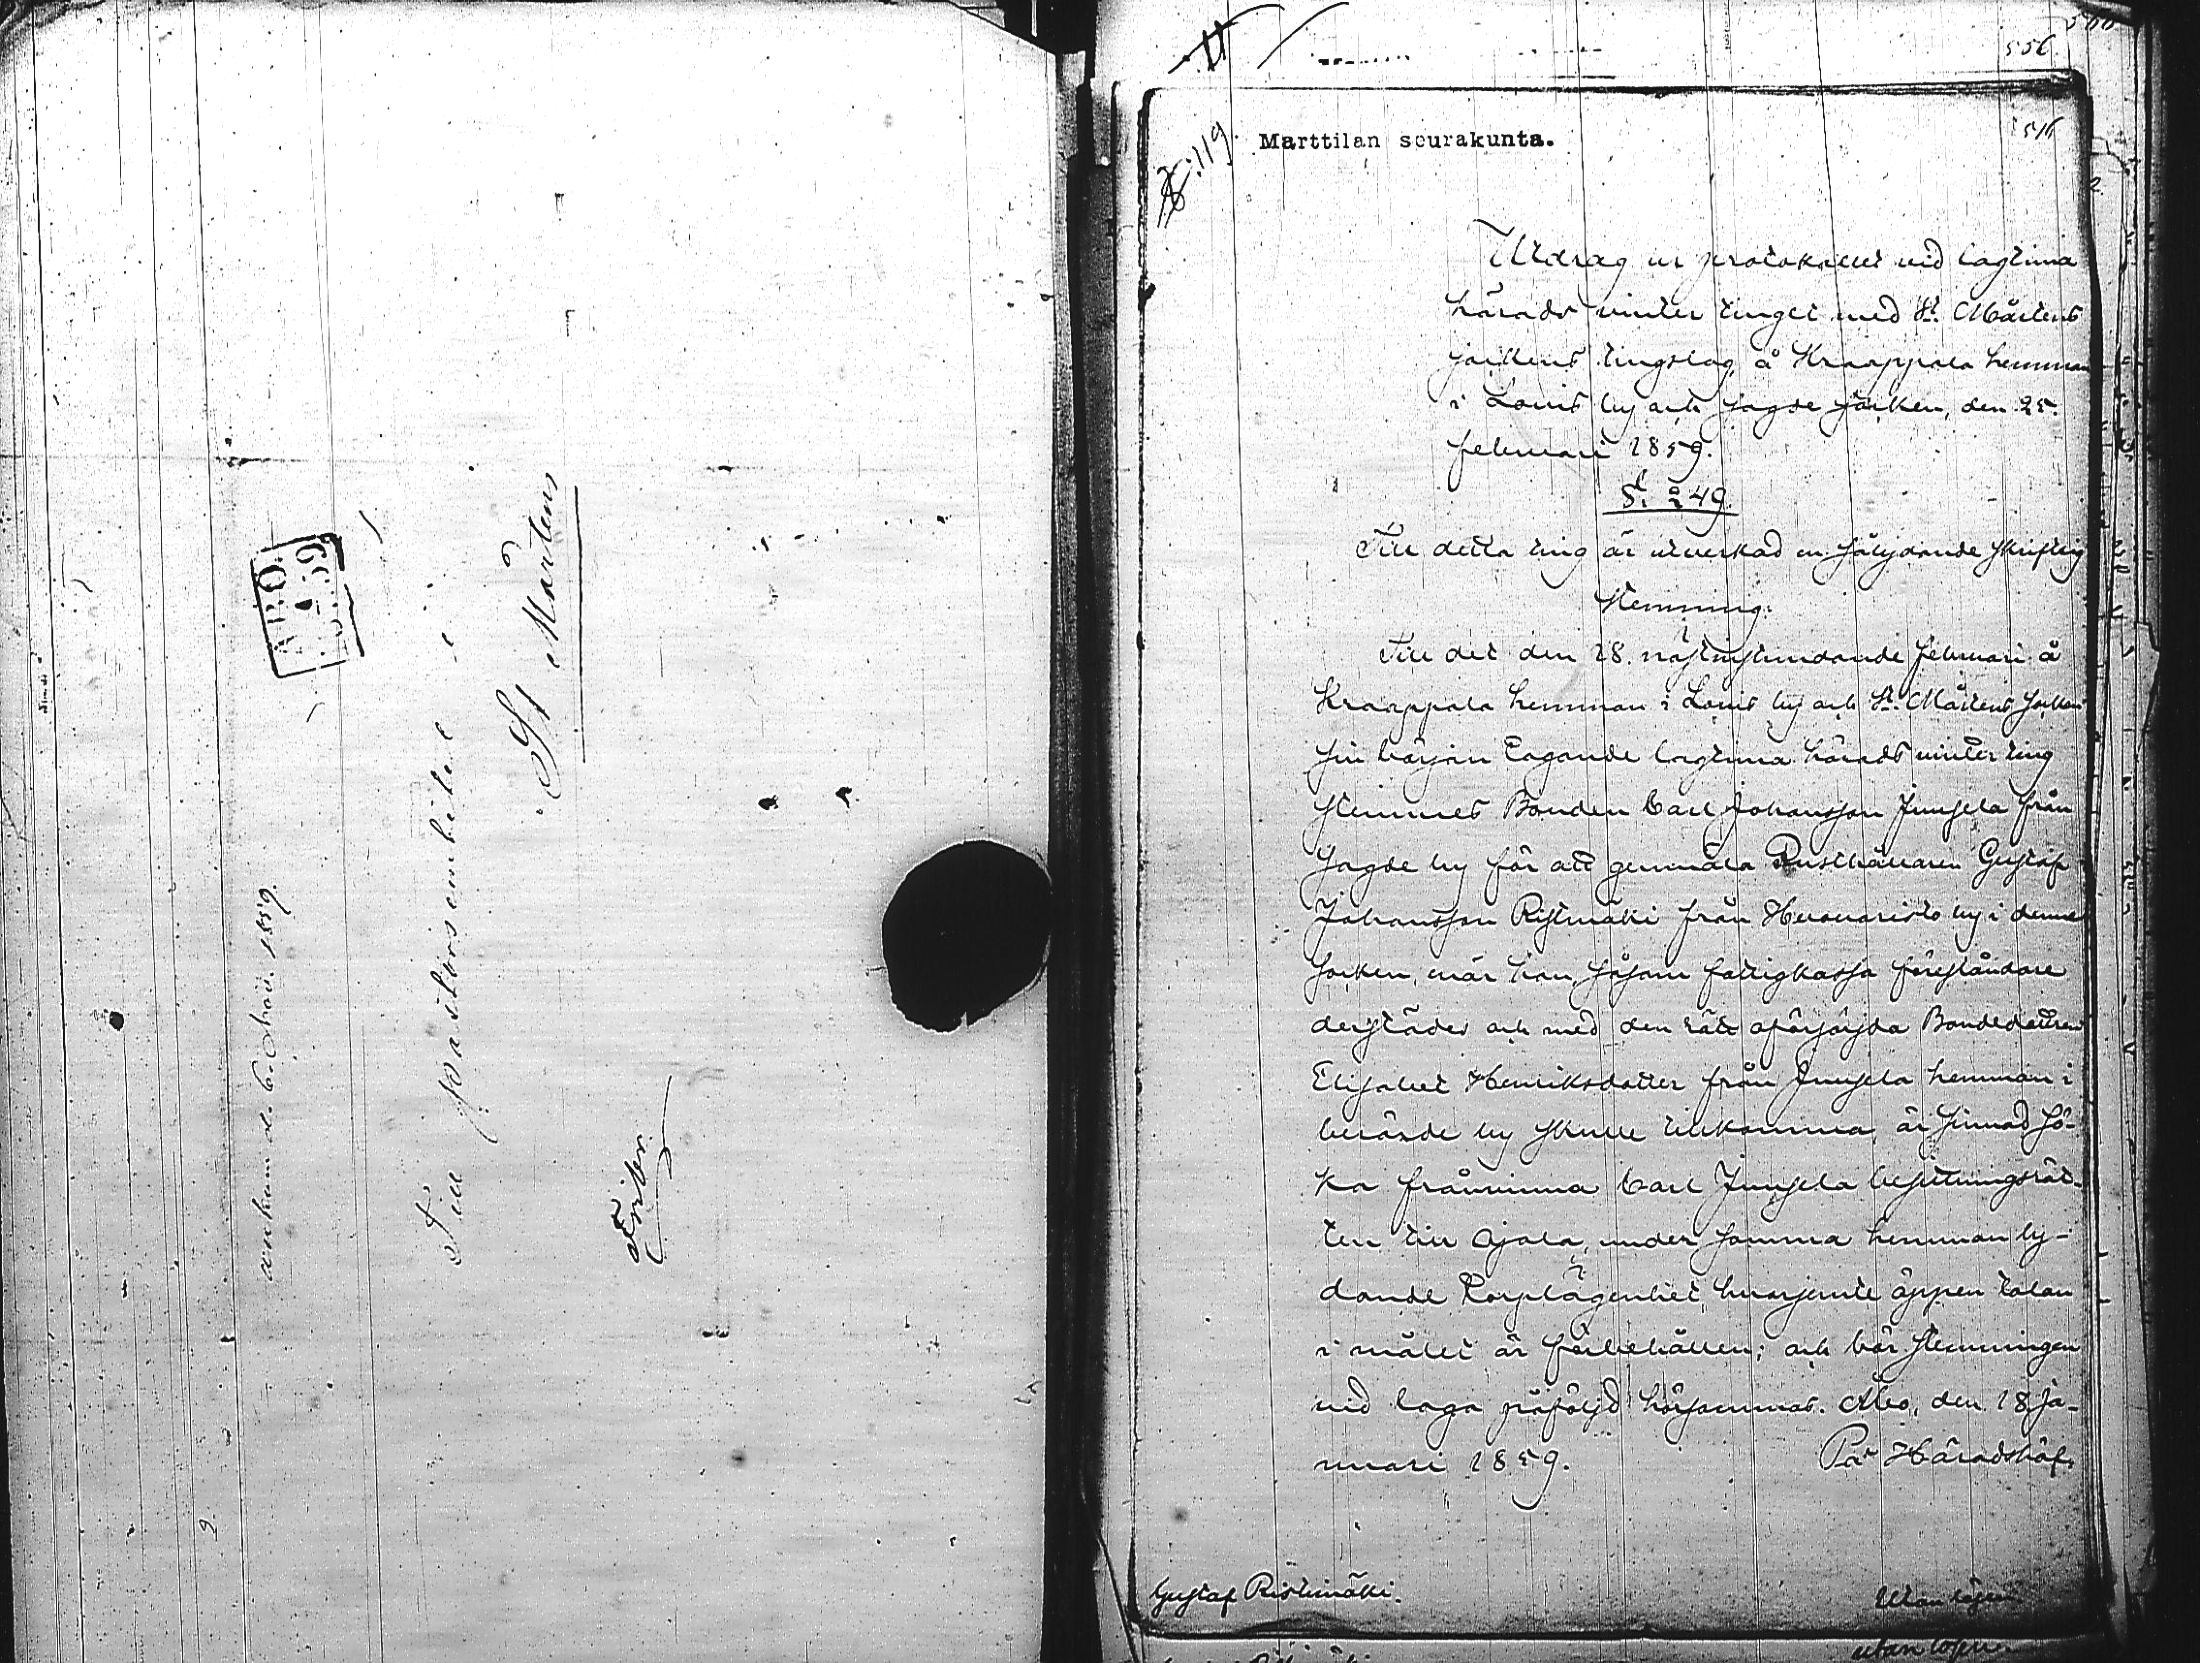 ankom d. 6 Octob. 1859.
ÅBO
Till Pastorsembetet i
St Mårtens
Friber.
9
556
516
№ 119.
Marttilan seurakunta.
Utdrag ur protokollet vid lagtima
härads vinter tinget med St. Mårtens
sockens tingslag, å Kraappala hemman
i Lovis by och sagde socken, den 25.
februari 1859.
S. å 49.
Till detta ting är utverkad en sålydande skriftlig
Stemning:
Till det den 18. nästinstundande februari å
Kraappala hemman i Lovis by och St. Mårtens socken
sin början tagande lagtima härads vinter ting
stemmes Bonden Carl Johansson Junsela från
sagde by för att genmäla Rusthållaren Gustaf
Johansson Ristimäki från by i denna
socken, när han, såsom fattigkassa föreståndare
derstädes och med den rätt aförsörjda Bondedottren
Elisabet Henriksdotter från Junsela hemman i
berörde by skulle tillkomma, är sinnad sö-
ka frånvinna Carl Junsela besittningsrät-
ten till Ojala, under samma hemman ly-
dande Torplägenhet, hvarjemte öppen talan
i målet är förbehållen; och bör stemningen
vid laga påföljd hörsammas. Åbo, den 18 ja-
nuari 1859. På Häradshöf-
Gustaf Ristimäki.
Utan lösen
utan lösen